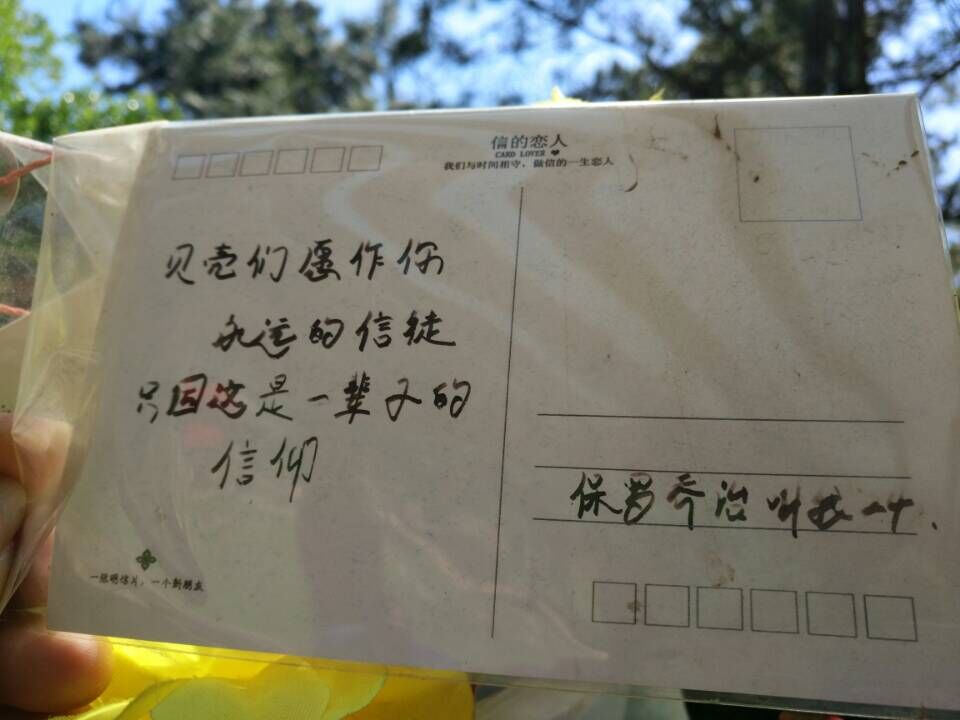 信的恋人
CARD LOVER
我们与时间相守,做信的一生恋人
贝壳们愿作你
永远的信徒
只因这是一辈子的
信仰
保罗乔治叫
一张明信片,一个新朋友